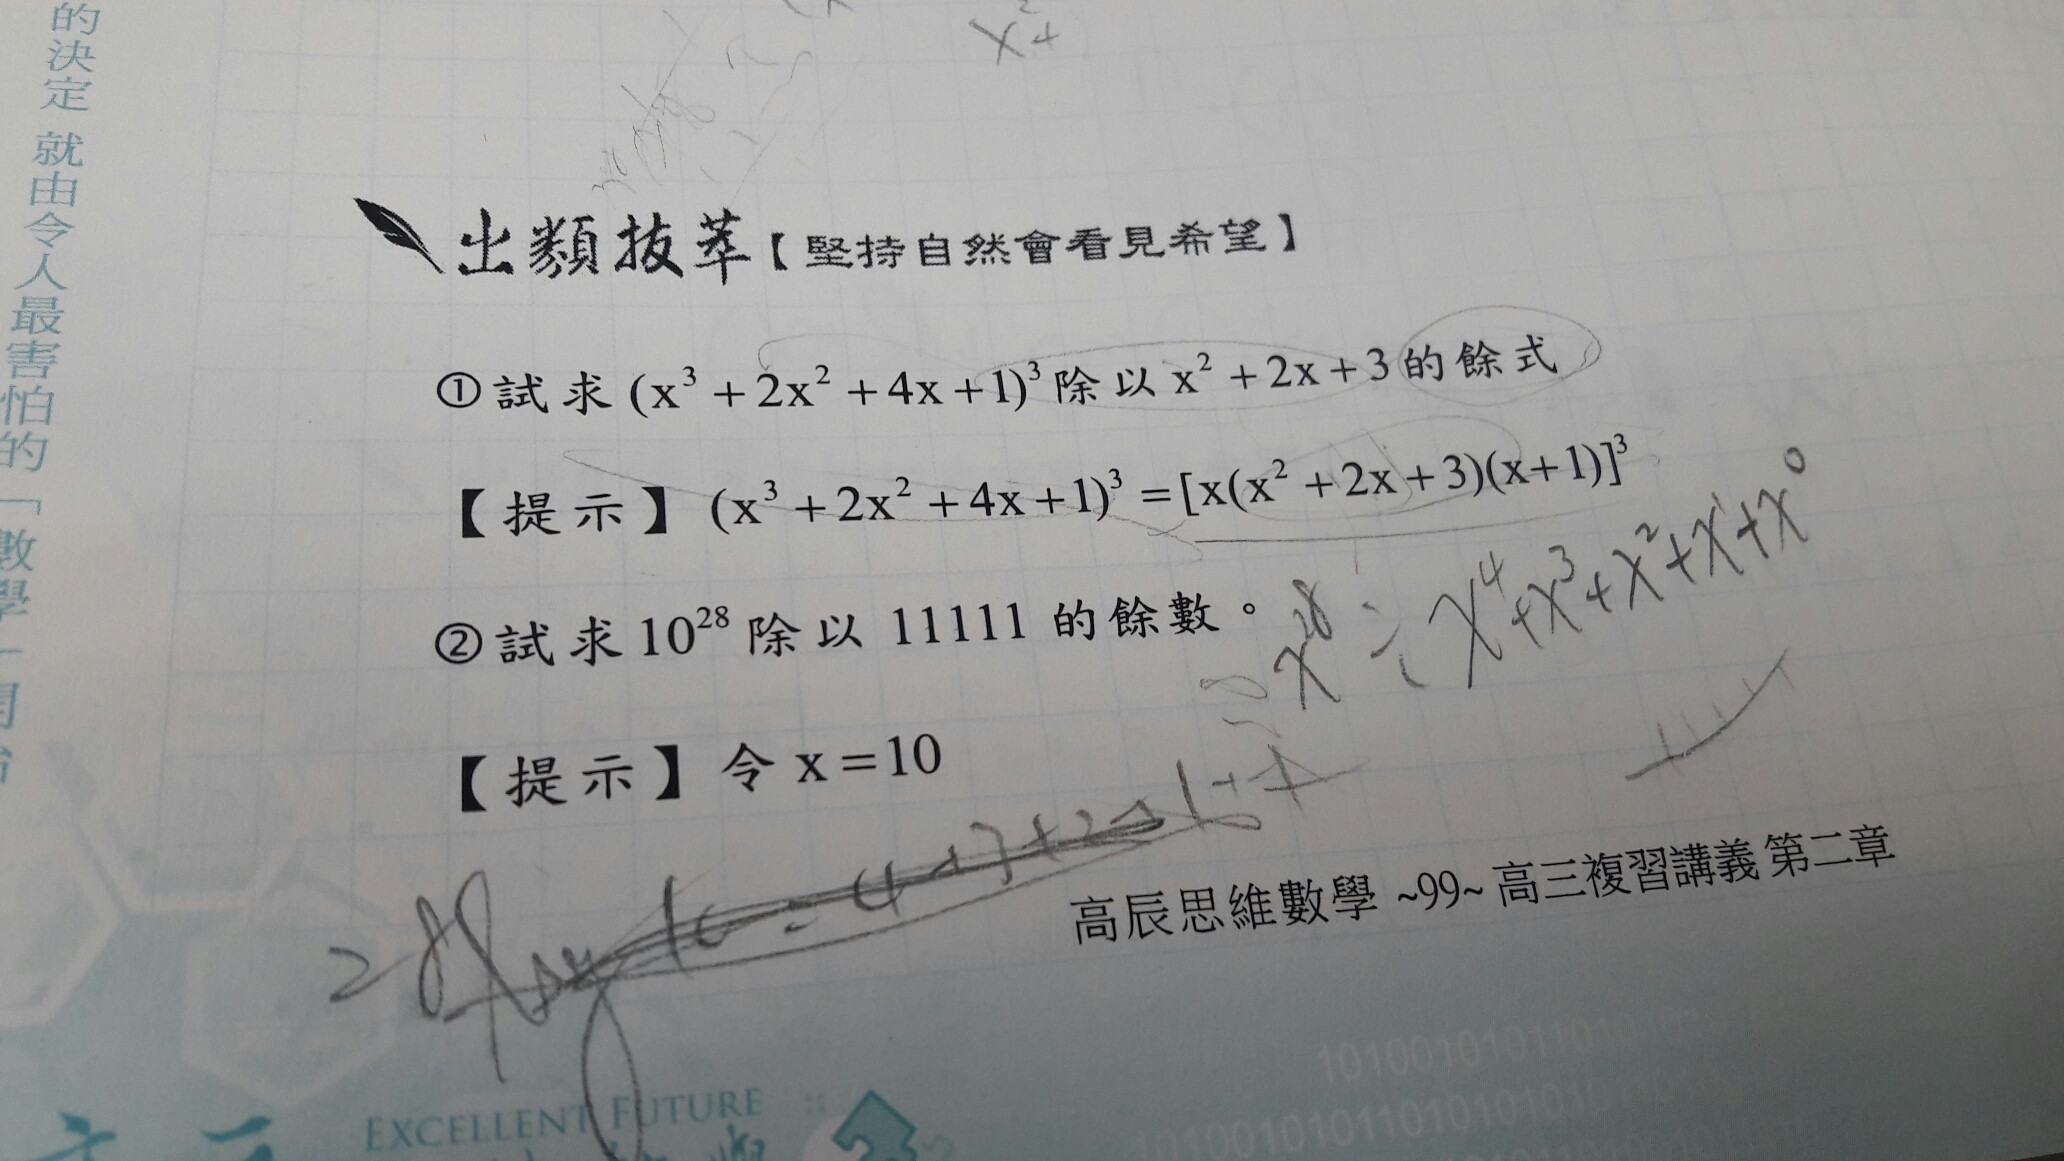 的決定 就由令人最害怕的「數學」開始
x²4
出類拔萃【堅持自然會看見希望】
①試求 (x³+2x²+4x+1)³ 除以 x²+2x+3 的餘式
【提示】(x³+2x²+4x+1)³=[x(x²+2x+3)(x+1)]³
②試求 10²⁸ 除以 11111 的餘數。
x²⁸ ÷ x⁴+x³+x²+x¹+x⁰
【提示】令 x=10
高辰思維數學 ~99~ 高三複習講義 第二章
EXCELLENT FUTURE